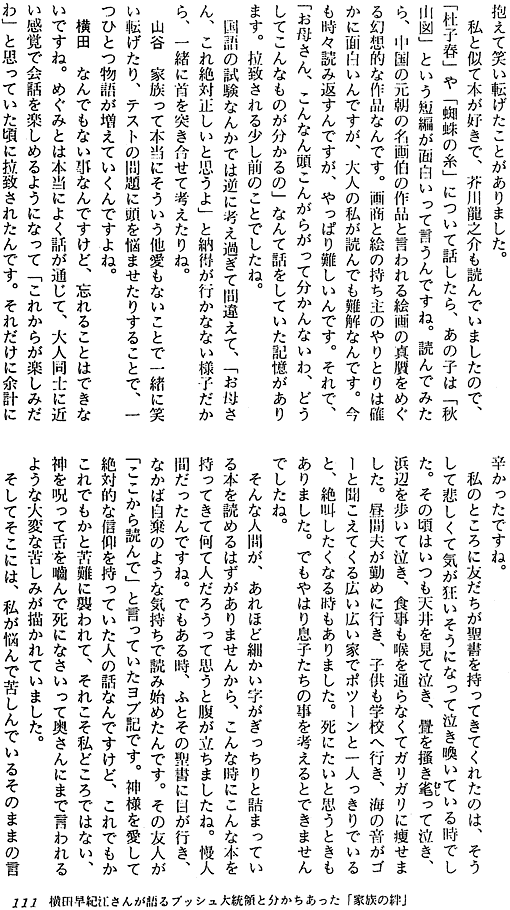 抱えて笑い転げたことがありました。
　私と似て本が好きで、芥川龍之介も読んでいましたので、
「杜子春」や「蜘蛛の糸」について話したら、あの子は「秋
山図」という短編が面白いって言うんですね。読んでみた
ら、中国の元朝の名画伯の作品と言われる絵画の真贋をめぐ
る幻想的な作品なんです。画商と絵の持ち主のやりとりは確
かに面白いんですが、大人の私が読んでも難解なんです。今
も時々読み返すんですが、やっぱり難しいんです。それで、
「お母さん、こんなん頭こんがらがって分かんないわ、どう
してこんなものが分かるの」なんて話をしていた記憶があり
ます。拉致される少し前のことでしたね。
　国語の試験なんかでは逆に考え過ぎて間違えて、「お母さ
ん、これ絶対正しいと思うよ」と納得が行かない様子だか
ら、一緒に首を突き合せて考えたりね。
山谷　家族って本当にそういう他愛もないことで一緒に笑
い転げたり、テストの問題に頭を悩ませたりすることで、一
つひとつ物語が増えていくんですよね。
横田　なんでもない事なんですけど、忘れることはできな
いですね。めぐみとは本当によく話が通じて、大人同士に近
い感覚で会話を楽しめるようになって「これからが楽しみだ
わ」と思っていた頃に拉致されたんです。それだけに余計に
辛かったですね。
　私のところに友だちが聖書を持ってきてくれたのは、そう
して悲しくて気が狂いそうになって泣き喚いている時でし
た。その頃はいつも天井を見て泣き、畳を掻き毟って泣き、
浜辺を歩いて泣き、食事も喉を通らなくてガリガリに痩せま
した。昼間夫が勤めに行き、子供も学校へ行き、海の音がゴ
ーと聞こえてくる広い広い家でポツーンと一人っきりでいる
と、絶叫したくなる時もありました。死にたいと思うときも
ありました。でもやはり息子たちの事を考えるとできません
でしたね。
　そんな人間が、あれほど細かい字がぎっちりと詰まってい
る本を読めるはずがありませんから、こんな時にこんな本を
持ってきて何て人だろうって思うと腹が立ちましたね。慢人
間だったんですね。でもある時、ふとその聖書に目が行き、
なかば自棄のような気持ちで読み始めたんです。その友人が
「ここから読んで」と言っていたヨブ記です。神様を愛して
絶対的な信仰を持っていた人の話なんですけど、これでもか
これでもかと苦難に襲われて、それこそ私どころではない、
神を呪って舌を嚙んで死になさいって奥さんにまで言われる
ような大変な苦しみが描かれていました。
　そしてそこには、私が悩んで苦しんでいるそのままの言
111　横田早紀江さんが語るブッシュ大統領と分かちあった「家族の絆」